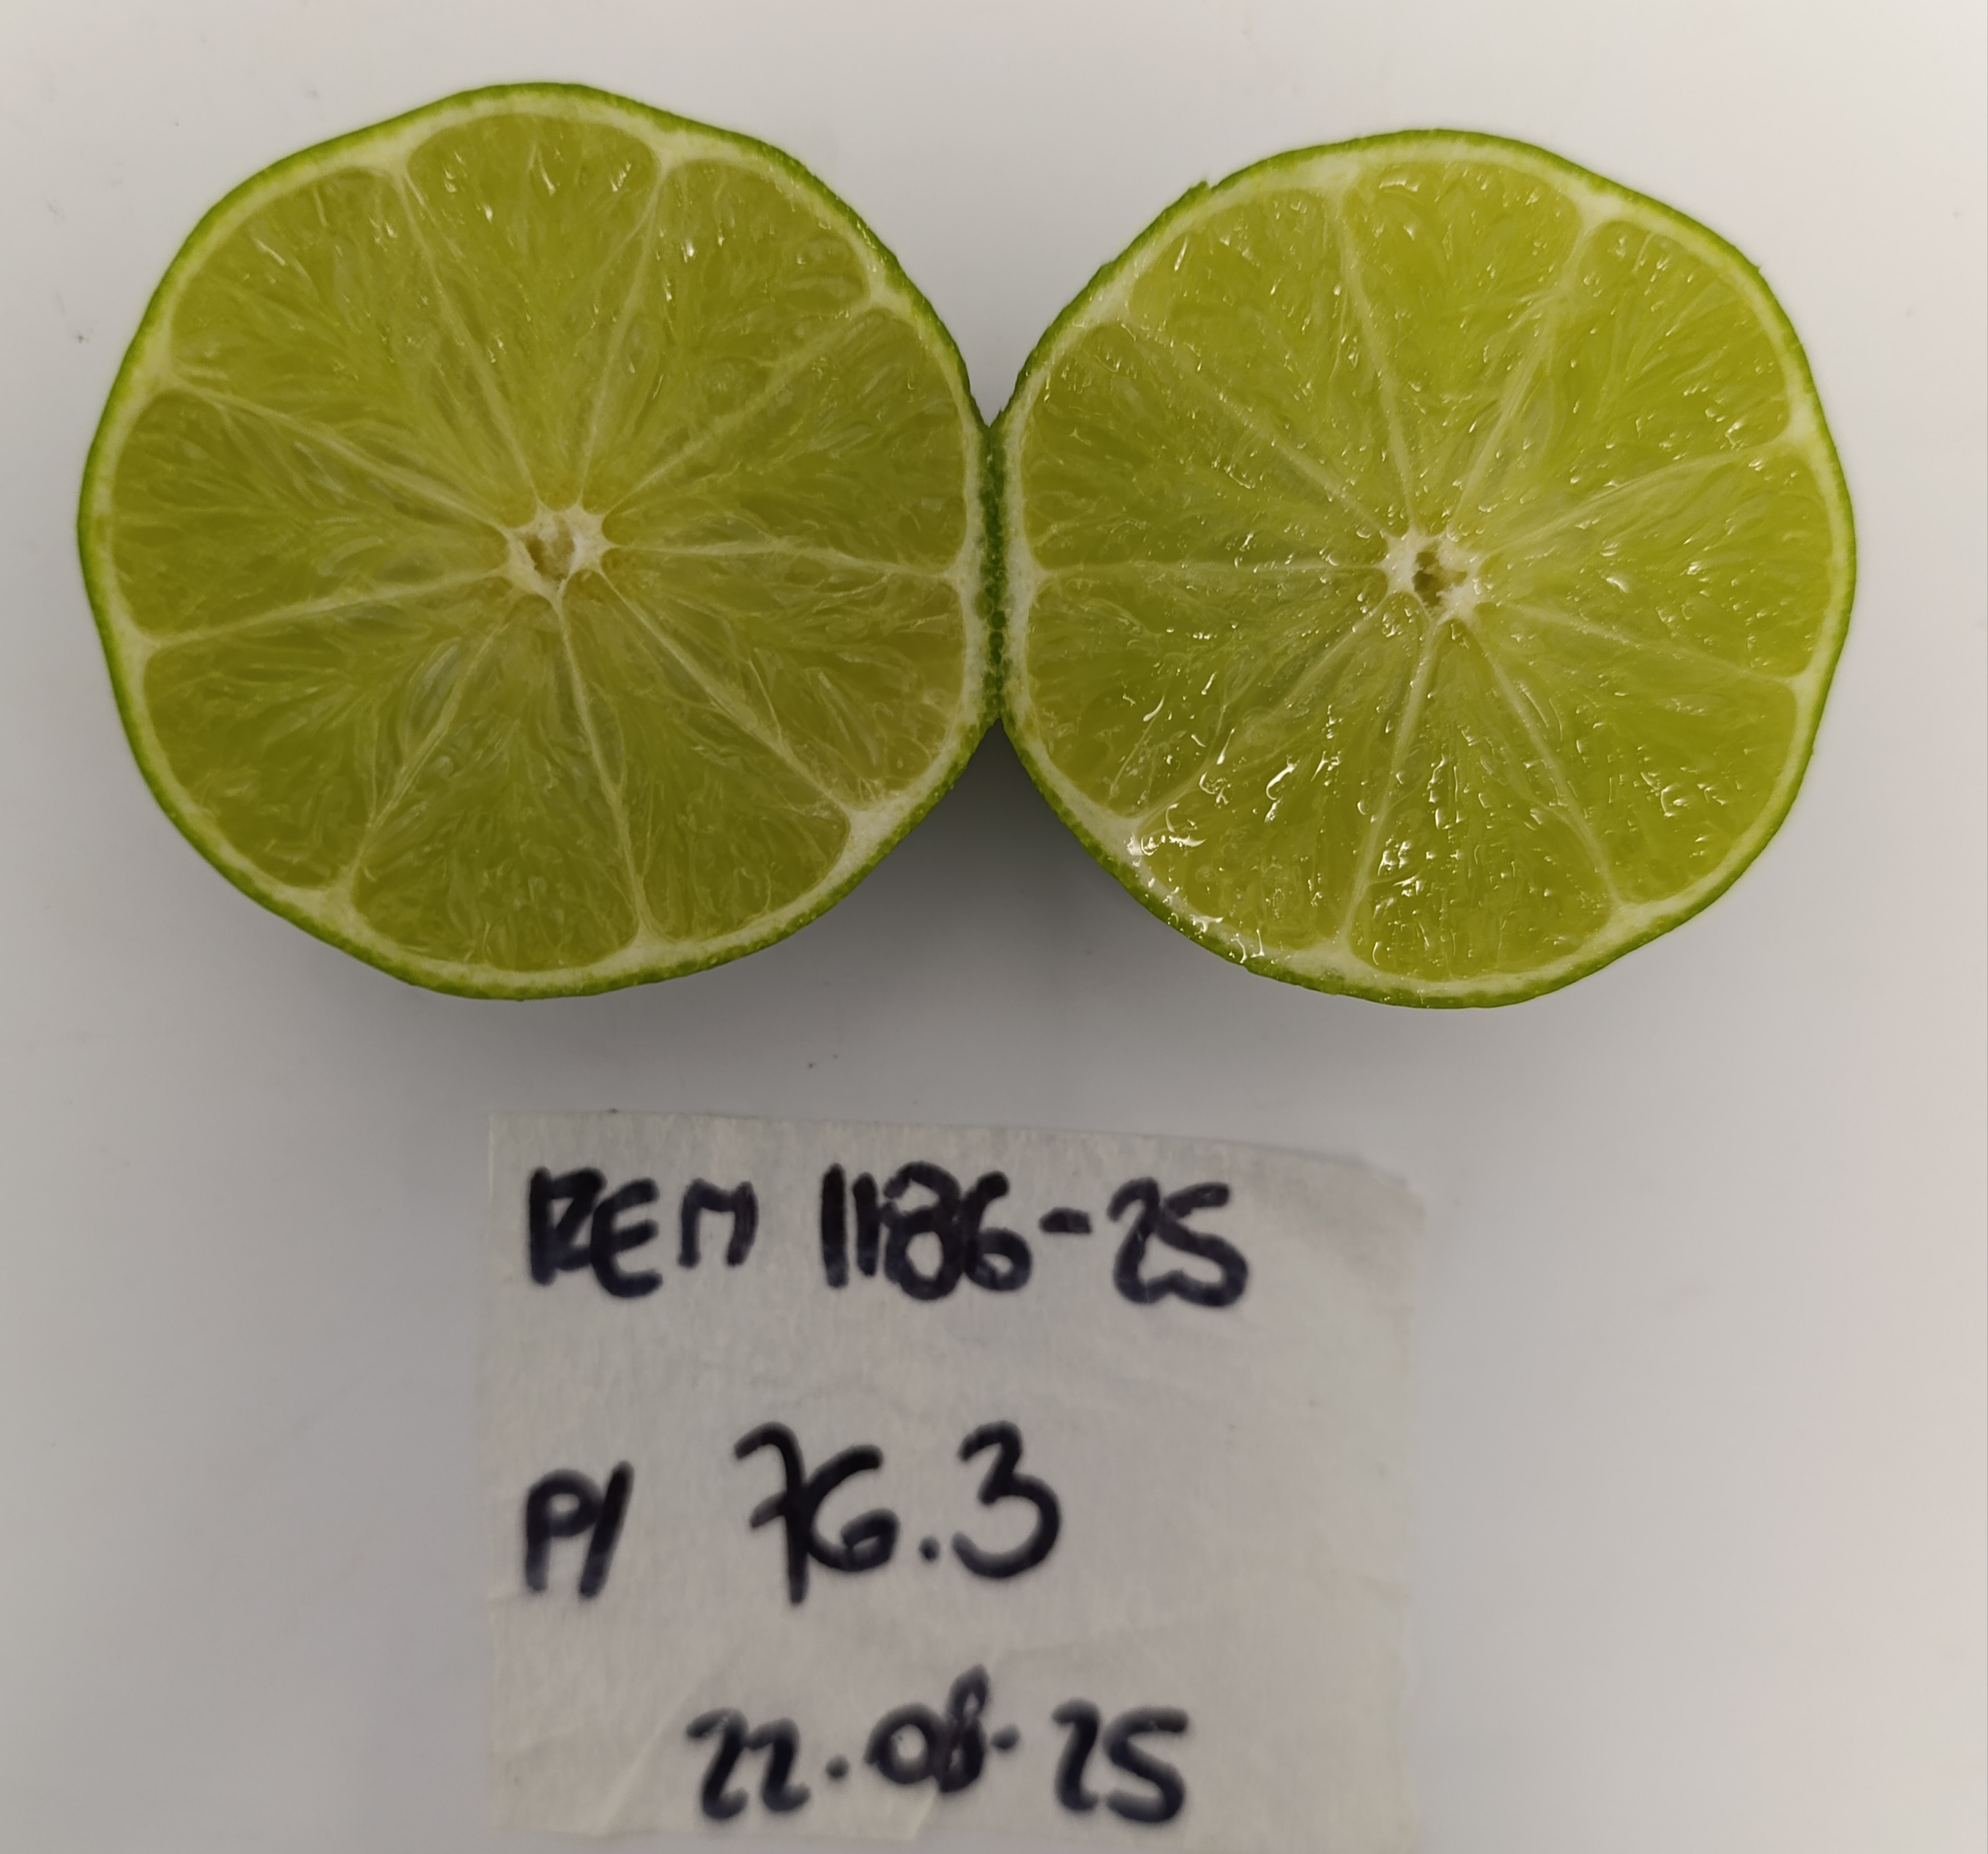 REM 1186-25
P/ 76.3
22.08.25